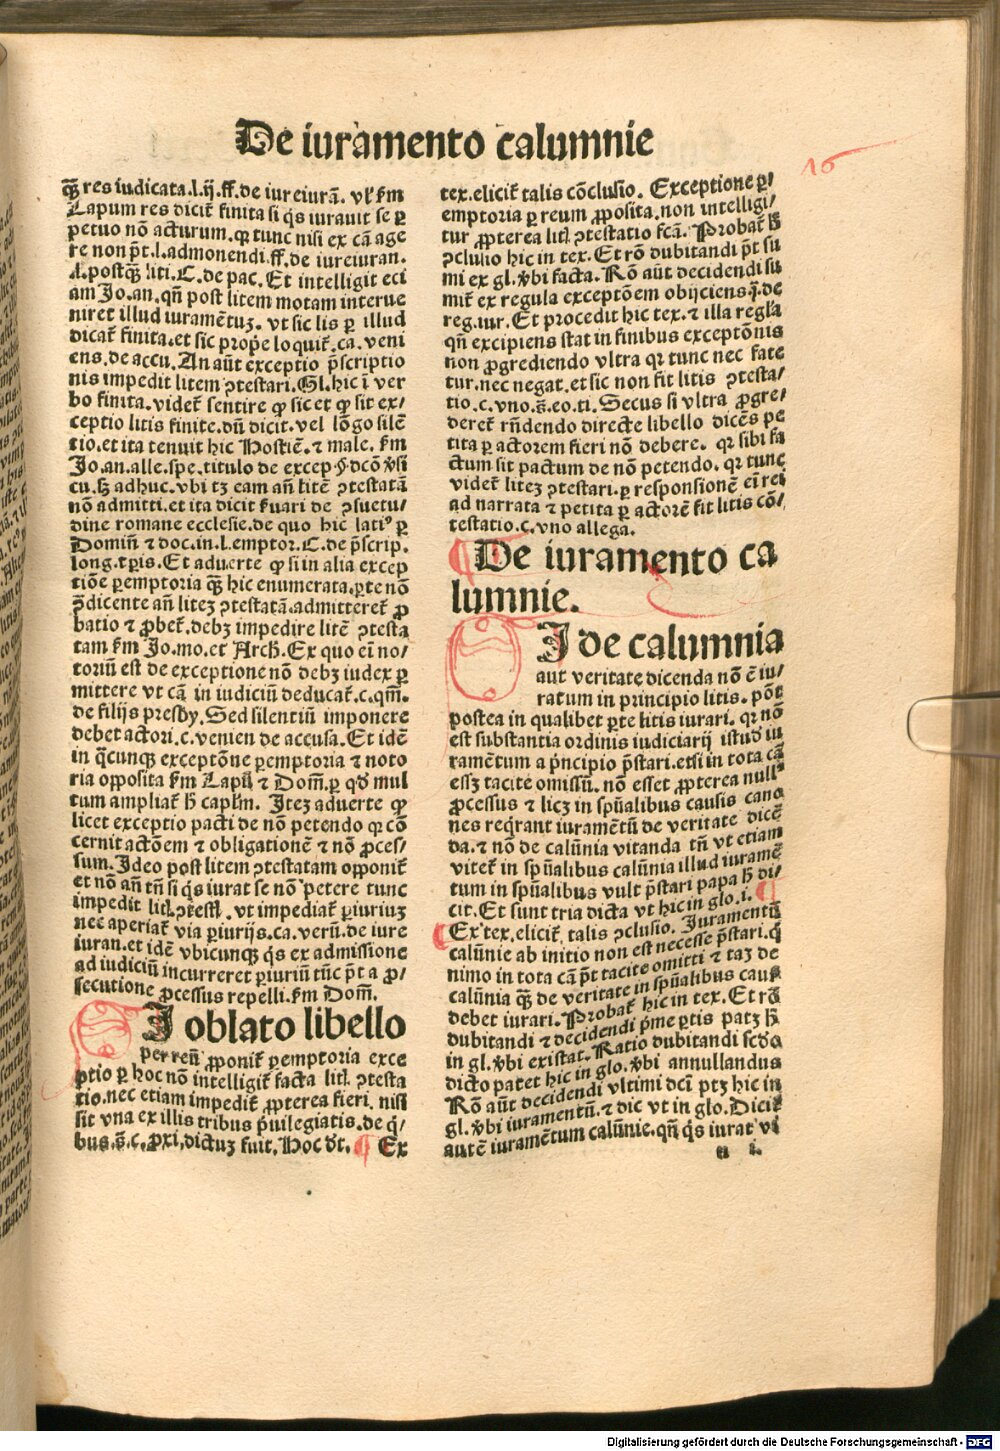 De iuramento calumnie
16
qȝ res iudicata.l.ij.ff.de iureiurã. vl' s̃m
Lapum res dicit̃ finita si q̃s iurauit se ꝑ
petuo nõ acturum.qꝛ tunc nisi ex cã age
re non p̃t.l.admonendi.ff.de iureiuran.
.l.postqȝ liti.C.de pac. Et intelligit eci
am Jo.an.qñ post litem motam interue
niret illud iuramẽtuȝ. vt sic lis ꝑ illud
dicat̃ finita.et sic prop̃e loquit̃.ca.veni
ens.de accu. An aũt exceptio p̃scriptio
nis impedit litem ꝯtestari. Gl.hic ĩ ver
bo finita.videt̃ sentire ꝙ sic et ꝙ sit ex/
ceptio litis finite.dũ dicit.vel lõgo silẽ
tio.et ita tenuit hic Hostiẽ.⁊ male. s̃m
Jo.an.alle.spe.titulo de excep.§.dcõ v̾si
cu.sȝ adhuc.vbi tȝ eam añ litẽ ꝯtestatã
nõ admitti.et ita dicit s̃uari de ꝯsuetu/
dine romane ecclesie.de quo hic lati⁹ ꝑ
Domiñ ⁊ doc.in.l.emptor.C.de p̃scrip.
long.tꝑis. Et aduerte ꝙ si in alia excep
tiõe ꝑemptoria qȝ hic enumerata.ꝑte nõ
ꝯ̃dicente añ liteȝ ꝯtestatã.admitteret̃ ꝓ
batio ⁊ ꝓbet̃.debȝ impedire litẽ ꝯtesta
tam s̃m Jo.mo.et Arch̃. Ex quo eĩ no/
toriũ est de exceptione nõ debȝ iudex ꝑ
mittere vt cã in iudiciũ deducat̃.c.qm̃.
de filijs presby. Sed silentiũ imponere
debet actori.c.venien de accusa. Et idẽ
in q̃cunqȝ exceptõne ꝑemptoria ⁊ noto
ria opposita s̃m Lapũ ⁊ Dom̃.ꝑ qđ mul
tum ampliat̃ h̃ caplm̃. Iteȝ aduerte ꝙ
licet exceptio pacti de nõ petendo qꝛ cõ
cernit actõem ⁊ obligationẽ ⁊ nõ ꝓces/
sum. Ideo post litem ꝯtestatam opponit̃
et nõ añ tñ si q̃s iurat se nõ petere tunc
impedit lit̃.ꝯtestĩ. vt impediat̃ ꝑiuriuȝ
nec aperiat̃ via ꝑiurijs.ca.verũ.de iure
iuran.et idẽ vbicunqȝ q̃s ex admissione
ad iudiciũ incurreret ꝑiuriũ tũc p̃t a ꝓ/
secutione ꝓcessus repelli.s̃m Dom̃.
I oblato libello
per reũ ꝓponit̃ ꝑemptoria exce
ptio ꝑ hoc nõ intelligit̃ facta lit̃ ꝯtesta
tio.nec etiam impedit̃ ꝓpterea fieri. nisi
sit vna ex illis tribus p̃uilegiatis.de q̃/
bus.s̃.c.ꝓxi.dictuȝ fuit. Hoc d̃t. ¶ Ex
tex.elicit̃ talis cõclusio. Exceptione ꝑ/
emptoria ꝑ reum ꝓposita.non intelligi/
tur ꝓpterea lit̃ ꝯtestatio fcã. Probat̃ h̃
ꝯclusio hic in tex. Et rõ dubitandi p̃t su
mi ex gl.v̾bi facta. Rõ aũt decidendi su
mit̃ ex regula exceptõem obijciens.q̃.de
reg.iur. Et procedit hic tex.⁊ illa regl̃a
qñ excipiens stat in finibus exceptõnis
non ꝓgrediendo vltra qꝛ tunc nec fate
tur.nec negat.et sic non fit litis ꝯtesta/
tio.c.vno.s̃.eo.ti. Secus si vltra ꝓgre/
deret̃ rñdendo directe libello dicẽs pe
tita ꝑ actorem fieri nõ debere. qꝛ sibi fa
ctum sit pactum de nõ petendo. qꝛ tunc
videt̃ liteȝ ꝯtestari.ꝑ responsionẽ eĩ rei
ad narrata ⁊ petita ꝑ actorẽ fit litis cõ/
testatio.c.vno allega.
¶ De iuramento ca
lumnie.
I de calumnia
aut veritate dicenda nõ ẽ iu/
ratum in principio litis. põt
postea in qualibet ꝑte litis iurari. qꝛ nõ
est substantia ordinis iudiciarij istud iu
ramẽtum a p̃ncipio p̃stari.etsi in tota cã
esseȝ tacite omissũ. nõ esset ꝓpterea null⁹
ꝓcessus ⁊ licȝ in spũalibus causis cano
nes req̃rant iuramẽtũ de veritate dicẽ
da.⁊ nõ de calũnia vitanda tñ vt etiam
vitet̃ in spũalibus calũnia illud iuramẽ
tum in spũalibus vult p̃stari papa h̃ di/
cit. Et sunt tria dicta vt hic in glo.i. ¶
¶ Ex tex.elicit̃ talis ꝯclusio. Iuramentũ
calũnie ab initio non est necesse p̃stari.q̃
nimo in tota cã p̃t tacite omitti ⁊ taȝ de
calũnia qȝ de veritate in spũalibus causis
debet iurari. Probat̃ hic in tex. Et rõ
dubitandi ⁊ decidendi p̃me ꝑtis patȝ h̃
in gl.v̾bi existat. Ratio dubitandi scđo
dicto patet hic in glo.v̾bi annullandus
Rõ aũt decidendi vltimi dcĩ ptȝ hic in
gl.v̾bi iuramentũ.⁊ dic vt in glo. Dicit̃
autẽ iuramẽtum calũnie.qñ q̃s iurat vĩ
a i.
Digitalisierung gefördert durch die Deutsche Forschungsgemeinschaft - DFG